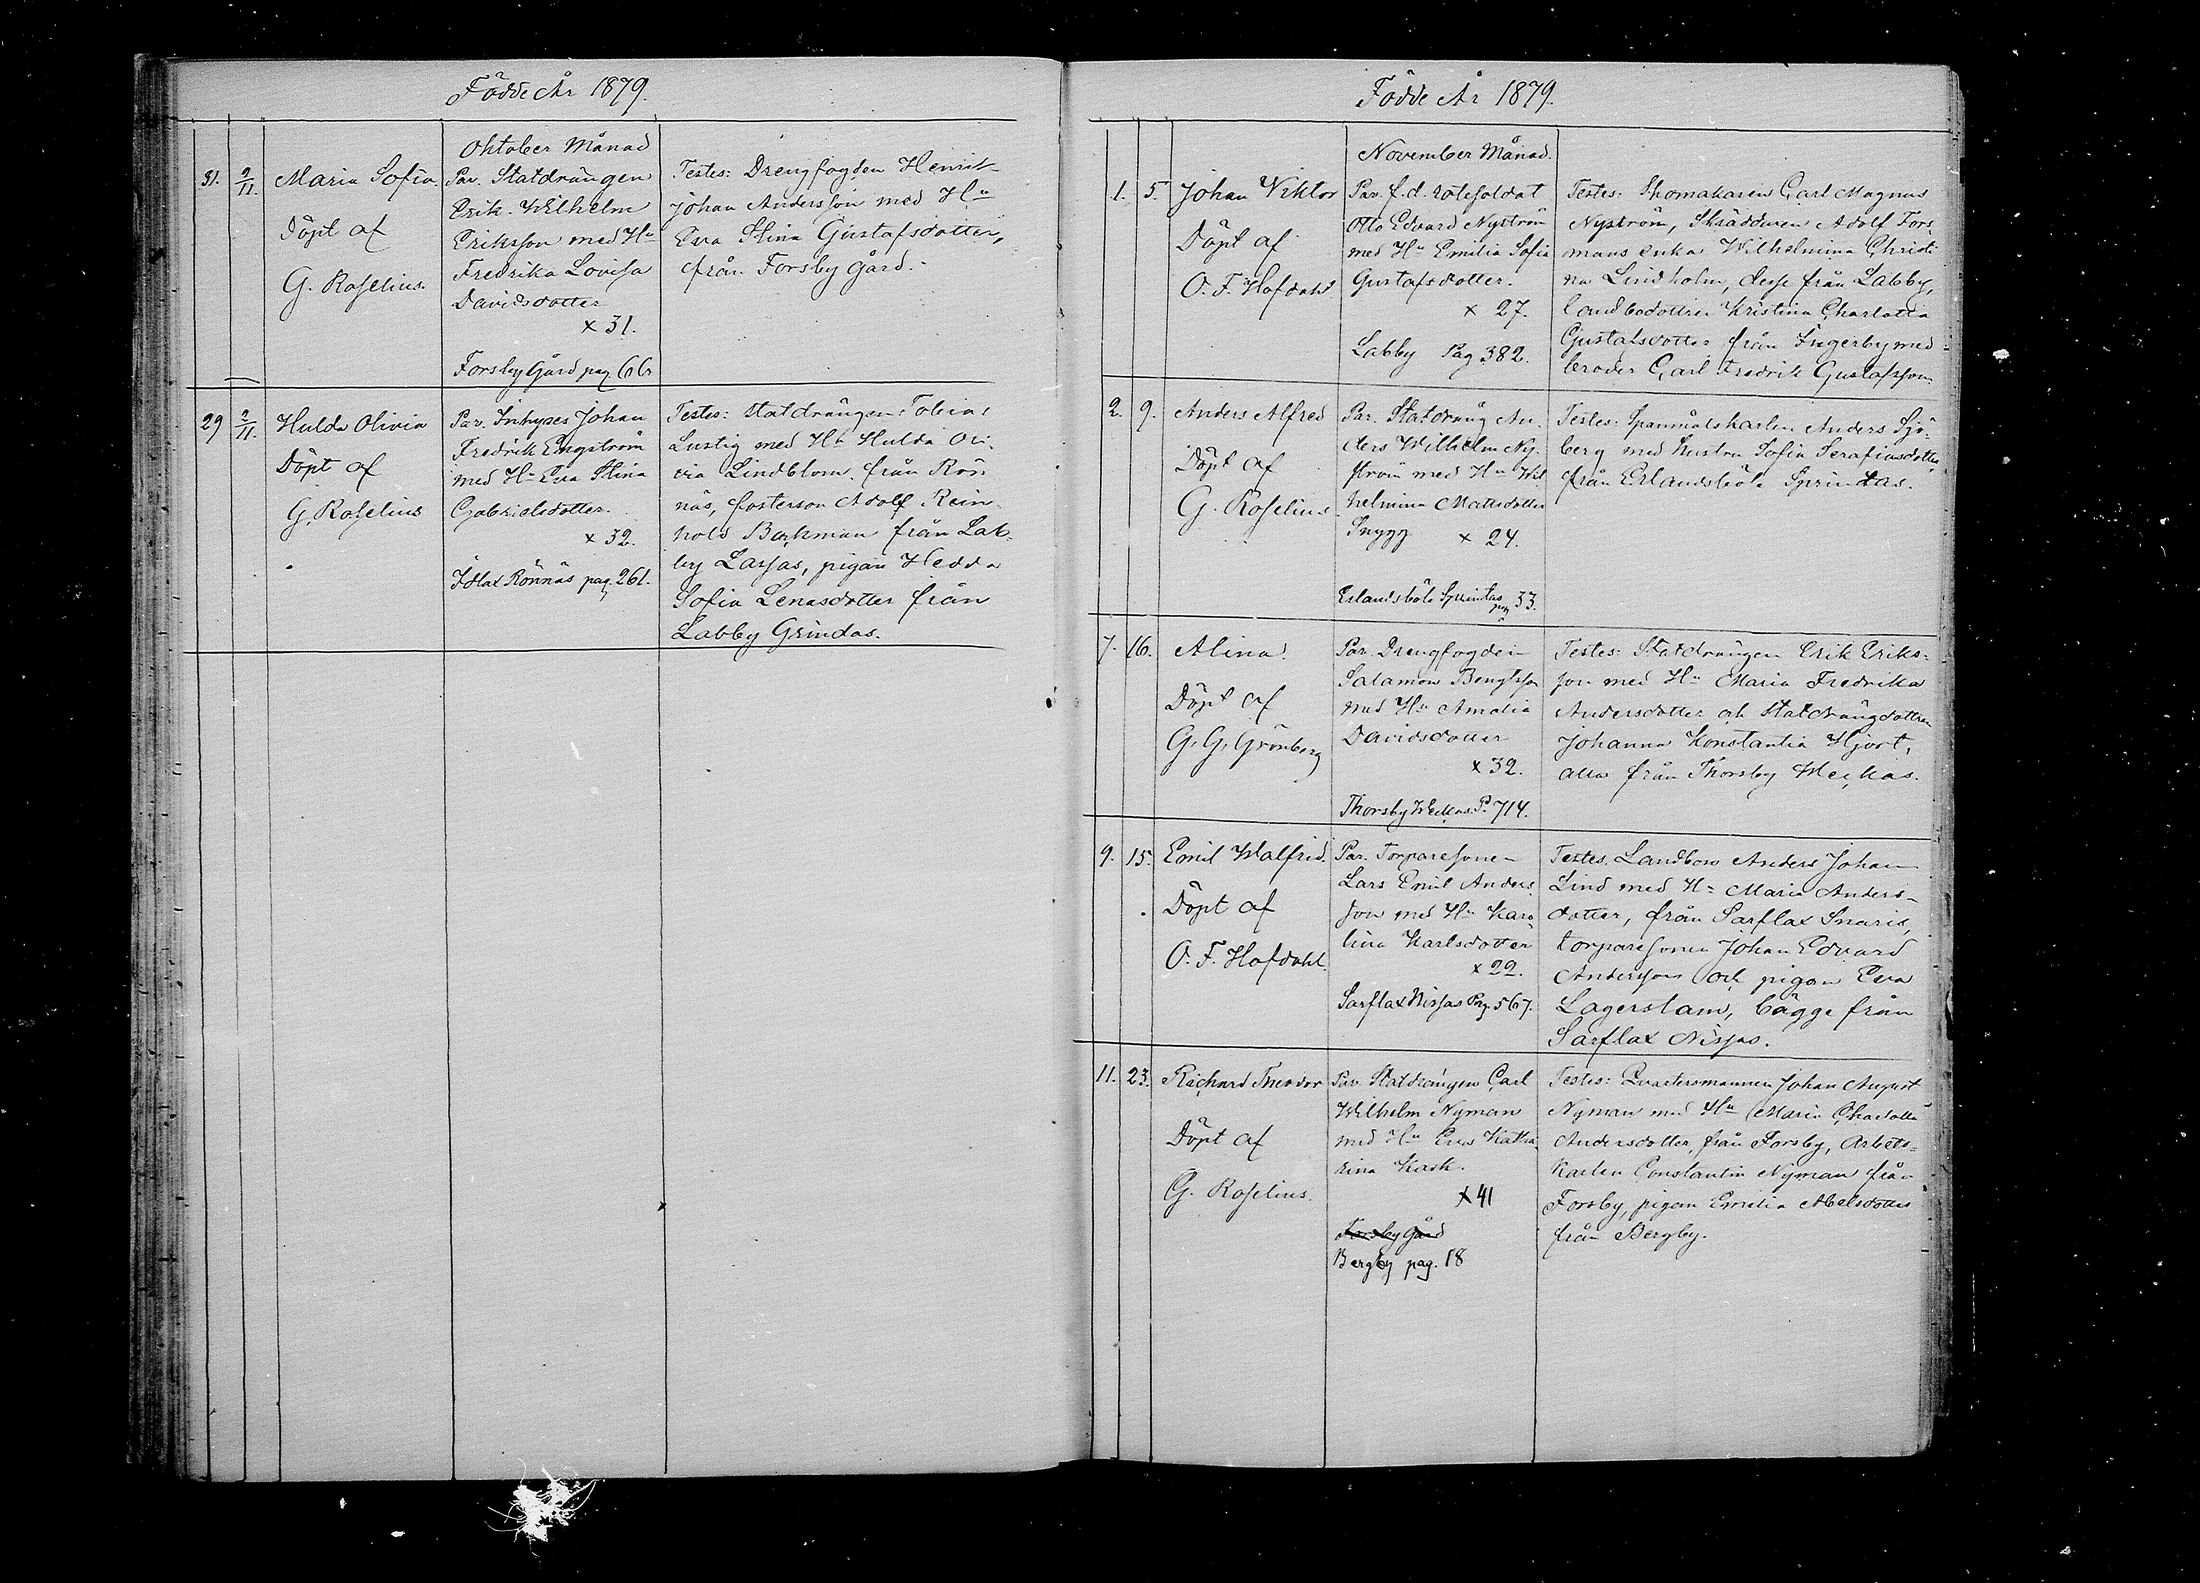 Födde År 1879.
Oktober Månad
31. 2/11. Maria Sofia
Döpt af
G. Roselius.
Par. Statdrängen
Erik Wilhelm
Eriksson med Hu
Fredrika Lovisa
Davidsdotter
x 31.
Forsby Gård pag. 66
Testes: Drengfogden Henrik
Johan Andersson med Hu
Eva Stina Gustafsdotter,
från Forsby gård.
29 2/11. Hulda Olivia
Döpt af
G. Roselius
Par. Inhyses Johan
Fredrik Engström
med Hu Eva Stina
Gabrielsdotter.
x 32.
Rönnäs pag. 261.
Testes: Statdrängen Tobias
Lustig med Hu Hulda Oli-
via Lindblom från Rön-
näs, fosterson Adolf Rein-
hold Backman från Lab-
by Larsas, pigan Hedda
Sofia Lenasdotter från
Labby Grindas.
Födde År 1879.
November Månad.
1. 5. Johan Viktor
Döpt af
O. F. Hofdahl
Par. f.d. rotesoldat
Otto Edvard Nyström
med Hu Emilia Sofia
Gustafsdotter.
x 27.
Labby Pag 382.
Testes: Skomakaren Carl Magnus
Nyström, Skräddaren Adolf Fors-
mans enka Wilhelmina Christi-
na Lindholm, desse från Labby,
landbodottren Kristina Charlotta
Gustafsdotter från Ingerby med
broder Carl Fredrik Gustafsson
2. 9. Anders Alfred
Döpt af
G. Roselius
Par. Statdräng An-
ders Wilhelm Ny-
ström med Hu Wil-
helmina Mattsdotter
Snygg x 24.
Erlandsböle Sprintas pag 33.
Testes: Spanmålskarlen Anders Sjö-
berg med hustru Sofia Serafiasdotter
från Erlandsböle Sprintas.
7. 16. Alina.
Döpt af
G. G. Grönberg
Par. Drengfogden
Salamon Bengtsson
med Hu Amalia
Davidsdotter
x 32.
Thorsby Weckas P. 714.
Testes: Statdrängen Erik Eriks-
son med Hu Maria Fredrika
Andersdotter och Statdrängdottren
Johanna Konstantia Hjort,
alla från Thorsby Weckas.
9. 15. Emil Walfrid.
Döpt af
O. F. Hofdahl.
Par. Torparesonen
Lars Emil Anders-
son med Hu Karo-
lina Karlsdotter
x 22.
Sarflax Nissas Pag. 567.
Testes. Landbon Anders Johan
Lind med Hu Maria Anders-
dotter, från Sarflax Snaris,
torparesonen Johan Edvard
Andersson och pigan Eva
Lagerstam, bägge från
Sarflax Nissas.
11. 23. Richard Theodor
Döpt af
G. Roselius.
Par. Statdrängen Carl
Wilhelm Nyman
med Hu Eva Katha-
rina Kask.
x 41
Forsby Gård
Bergby pag. 18
Testes: Qvartersmannen Johan August
Nyman med Hu Maria Charlotta
Andersdotter, från Forsby, Arbets-
karlen Constantin Nyman från
Forsby, pigan Emilia Abelsdotter
från Bergby.